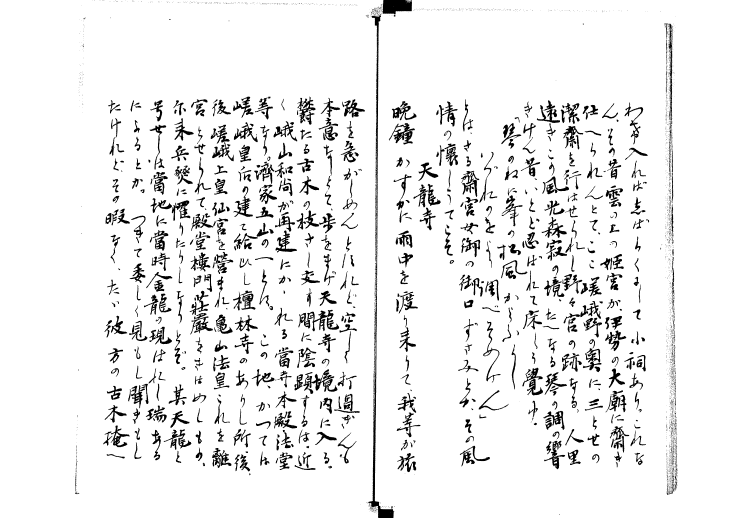 わけ入れば しばらくして小祠あり。これな
ん、その昔雲の上の姫宮が伊勢の大廟に齋き
仕へられんとて、ここ嵯峨野の奧に三とせの
潔齋を行はせられし野々宮の跡なる、人里
遠きこの風光森寂の境、たへなる琴の調の響
きけん昔、いとど忍ばれて床しう覺ゆ。
「琴のねに峯の松風かよふらし
いづれのをより調べそめけん」
とはさる齋宮女御の御口ずさみとか、その風
情の懷しうてこそ。
天龍寺
晩鐘かすかに雨中を渡り來りて、我等が旅
路を急がしめんとすれど、空しく打過ぎんも
本意なしとて歩をまげ天龍寺の境内に入る。
欝たる古木の枝さし交す間に陰顕するは、近
く峨山和尚が再建にかゝれる當寺本殿法堂
等なり。濟家五山の一とは。この地、かつては
嵯峨皇后の建て給ひし檀林寺のありし所、後、
後嵯峨上皇仙宮を營まれ、亀山法皇これを離
宮とせられて、殿堂樓門、莊嚴をきはめしものゝ、
尓来兵燹に懼りたりしなりとぞ。其天龍と
号せしは當地に當時金龍の現はれし瑞ある
によるとか。つきて委しく見もし聞きもし
たけれど、その暇なく、たゞ彼方の古木掩へ